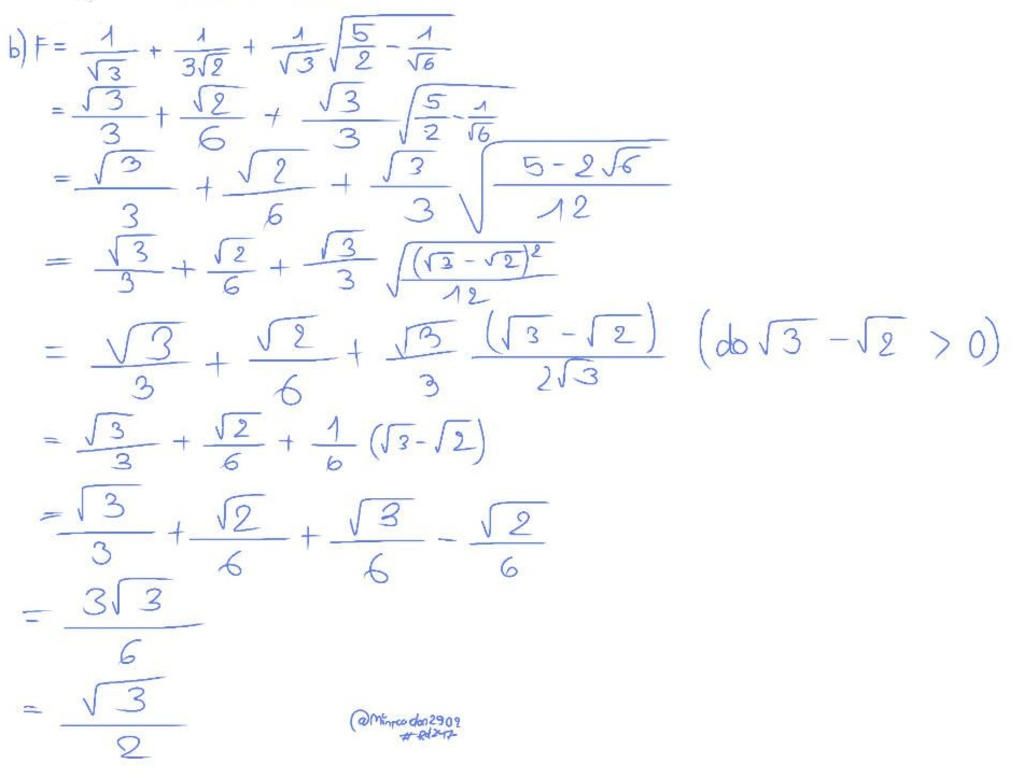 b) F = 1/√3 + 1/(3√2) + 1/√3 √(5/2 - 1/√6)
= √3/3 + √2/6 + √3/3 √(5/2 - 1/√6)
= √3/3 + √2/6 + √3/3 √((5 - 2√6)/12)
= √3/3 + √2/6 + √3/3 √((√3 - √2)²/12)
= √3/3 + √2/6 + √3/3 (√3 - √2)/(2√3) (do √3 - √2 > 0)
= √3/3 + √2/6 + 1/6 (√3 - √2)
= √3/3 + √2/6 + √3/6 - √2/6
= 3√3/6
= √3/2